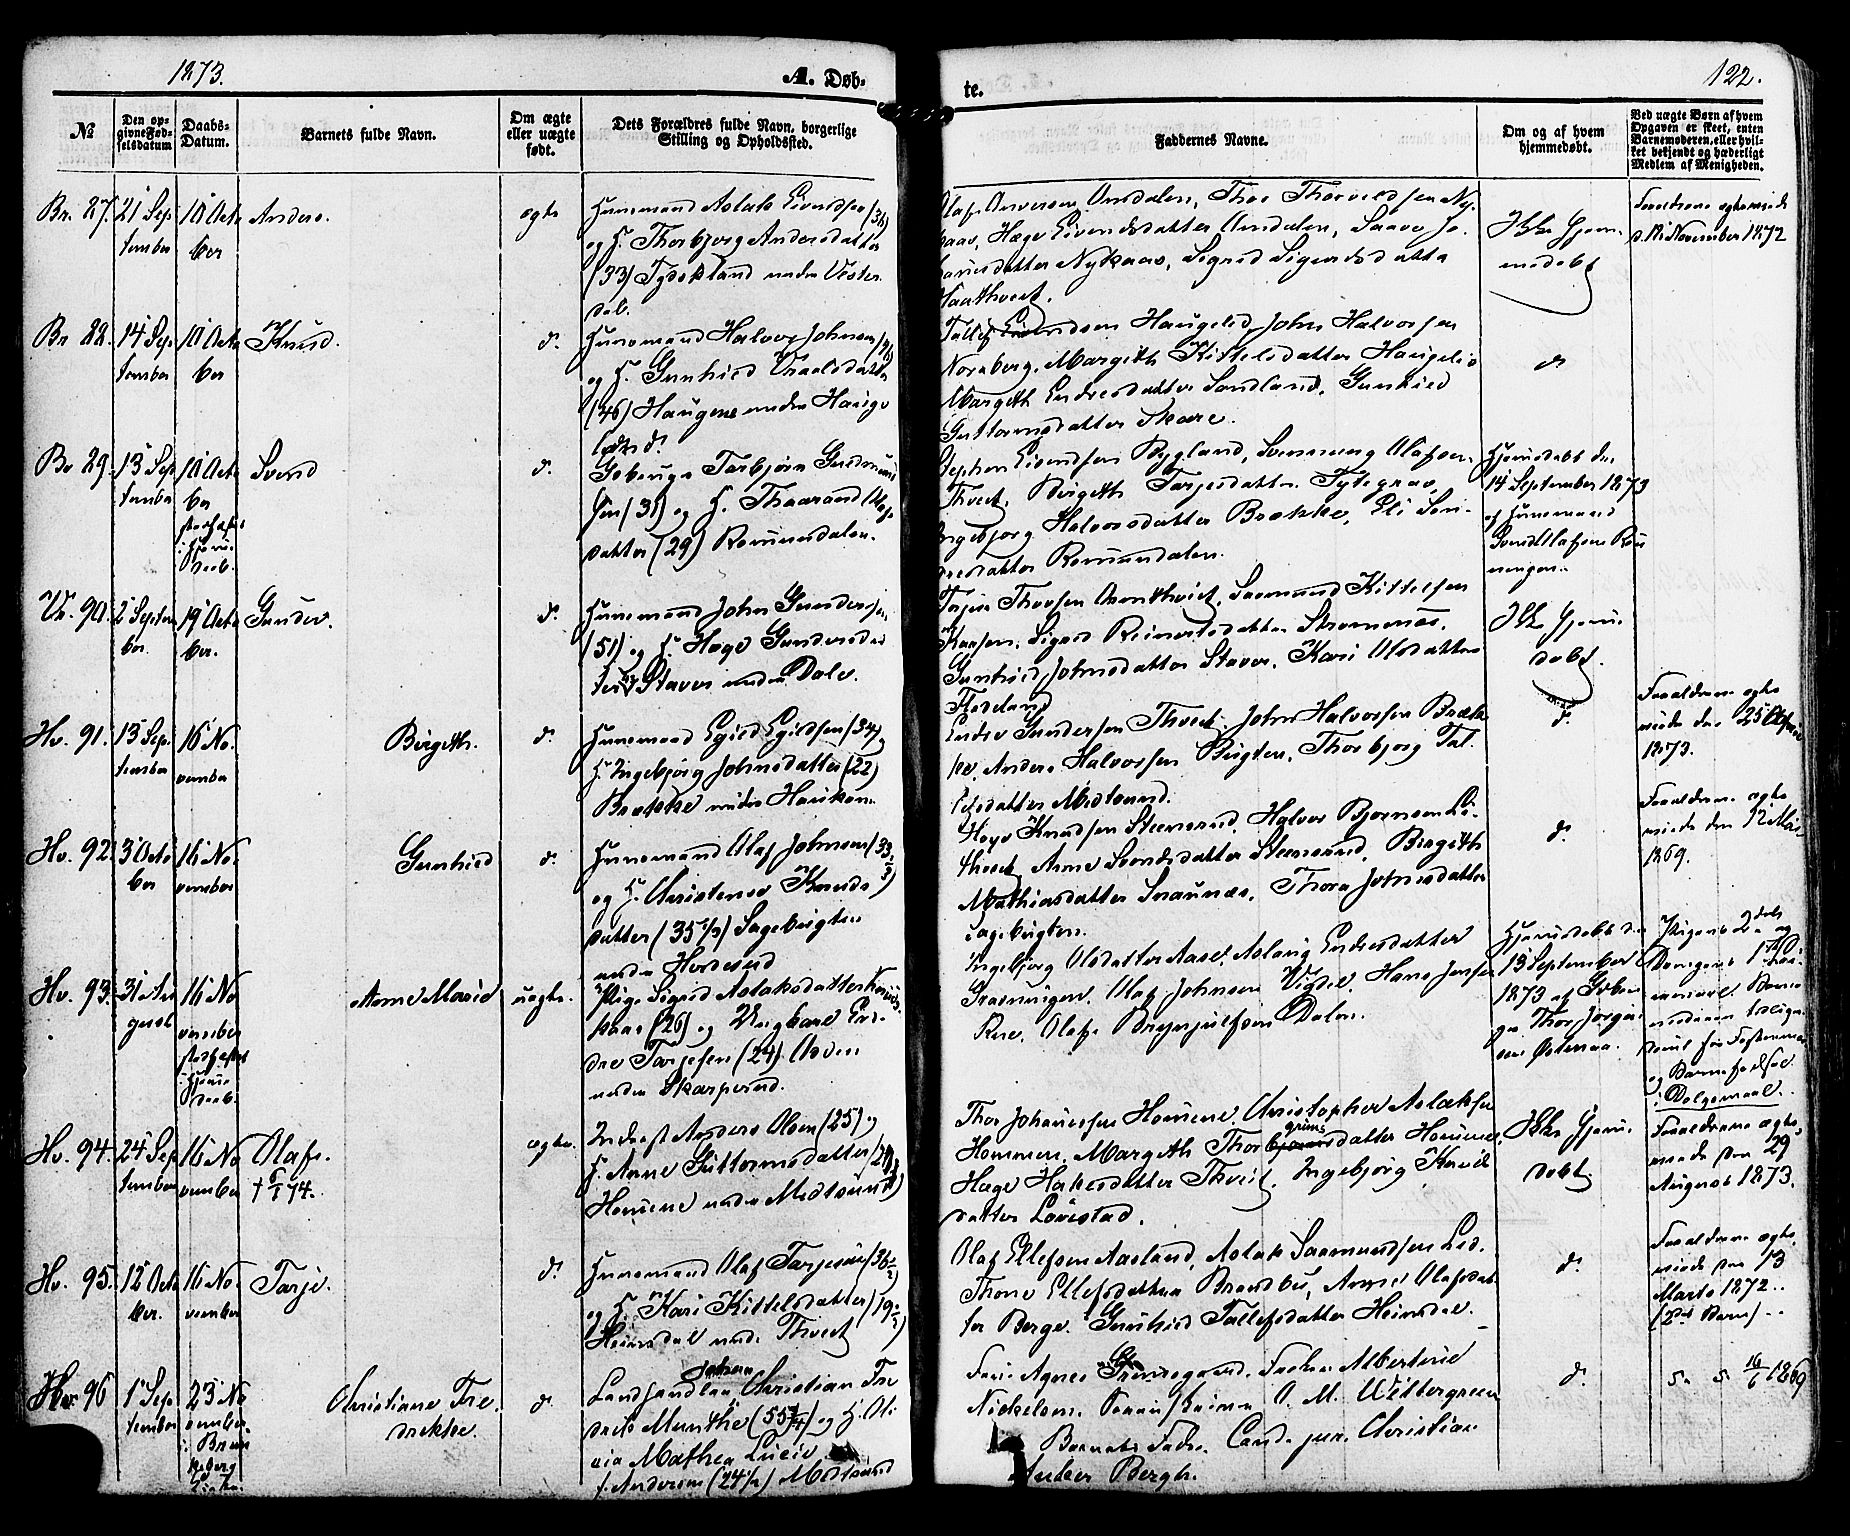 1873.
A. Døb-
te.
122.
№
Den op-
givne Fød-
selsdatum
Daabs-
Datum.
Barnets fulde Navn.
Om ægte
eller uægte
født.
Dets Forældres fulde Navn, borgerlige
Stilling og Opholdssted.
Faddernes Navne.
Om og af hvem
hjemmedøbt.
Ved uægte Børn af hvem
Opgaven er skeet, enten
Barnemoderen, eller hvil-
ket bekjendt og hæderligt
Medlem af Menigheden.
Br. 87.
21 Sep
tember
10 Octo
ber
Anders.
ægte
Huusmand Aslak Eivindsen (34)
og H. Thorbjørg Andersdatter
(33) Tydekland under Vester-
dal.
Olaf Anversen Omdalen, Thor Thorvildsen Ny-
kaas, Hæge Eivindsdatter Omdalen, Saave Jo-
hannesdatter Nykaas, Sigrid Sigurdsdatter
Haathveit.
Ikke hjem-
medøbt
Forældrene ægteviede
d. 12 November 1872
Br 88.
14 Sep
tember
10 Octo
ber
Knud.
d.
Huusmand Halvor Johnsen
og H. Gunhild Vraalsdatter
(46) Haugene under Hauge
Tallef Haugelid, John Halvorsen
Nornberg, Margith Kittelsdatter Haugelid
Margith Endresdatter Sandland, Gunhild
Guttormsdatter Skare.
d.
Br 89.
13 Sep
tember
10 Octo
ber
stadfæstet
i Hjemme
daab.
Svend
d.
Gbruger Torbjørn Gundmund
sen (31) og H. Thaarand Olafs
datter (29) Romundsdalen.
Stephen Eivindsen Bygland, Svennung Olafsen
Thveit, Birgith Tarjesdatter Tytegrav,
Ingebjørg Halvorsdatter Brække, Eli Svn-
nesdatter Romundalen.
Hjemmedøbt den
14 September 1873
af Huusmand
Svend Olafsen Røn
ningen.
Vr. 90.
2 Septem
ber.
19 Octo
ber.
Gunder.
d.
Huusmand John Gundersen
(51) og H. Hæge Gundersdat
ter Staver under Dale.
Terjer Thorsen Omthveit, Saamund Kittelsen
Kaasen, Sigrid Reinertsdatter Strømenæs,
Gunhild Johnsdatter Staver, Kari Olsdatter
Flateland
Ikke hjem
døbt.
Hv. 91.
13 Sep
tember
16 No
vember
Birgith.
d.
Huusmand Egild Egildsen (34)
H. Ingebjørg Johnsdatter (22)
Brække under Haukom
Endre Gundersen Thveit, John Halvorsen Bræk
ke, Anders Halvorsen Bugten, Thorbjørg Tal
lefsdatter Midtsund.
d.
Forældrene ægte
viede den 25
1873.
Hv. 92.
3 Octo
ber
16 No
vember
Gunhild
d.
Huusmand Olaf Johnsen (33
og H. Christense Knuds
datter (35 1/2) Sagebugten
under Hordesrud
Høye Knudsen Steensrud, Halvor Bjørnsen Li-
thveit, Anne Svendsdatter Steensrud, Birgith
Mathiasdatter Svaunæs, Thora Johnsdatter
Sagebugten.
d.
Forældrene ægte
viede den 12 Mai
1869.
Hv. 93.
31 Au
gust
16 No
vember
stadfæstet
i Hjemme
daab.
Anne Marie
uægte.
Pige Sigrid Aslaksdatter
kaas (26) og Ungkarl En-
dre Tarjesen (24) Aasen
under Skarprud.
Ingebjørg Olsdatter Aase, Aslaug Endresdatter
Grasningen, Olaf Johnsen Vigdal, Hans Jensen
Rue, Olaf Brynjulfsen Dalen
Hjemmedøbt den
13 September
1873 af Gaards
Thor Jørgen
sen Østenaa.
Pigens 2det og
Drengens 1ste
Barne
moderen
og Barnefødsel
i Dølgsmaal.
Hv. 94.
24 Sep
tember
16 No
vember
Olaf.
† 6/1 74.
ægte.
Inderst Anders Olsen (25) og
H. Anne Guttormsdatter
Homene under Midtsund
Thor Johannesen Homene, Christopher Aslaksen
Hommen, Margith Thorgrimsdatter Homene,
Hæge Hakesdatter Thveit, Ingebjørg Knuds
datter Lonestad.
Ikke hjem
døbt
Forældrene ægte
viede den 29
August 1873.
Hv. 95.
12 Octo
ber.
16 No
vember
Tarje.
d.
Huusmand Olaf Tarjesen (36 1/2)
og H. Kari Kittelsdatter (19
Heimdal under Thveit
Olaf Ellefsen Aasland, Aslak Saamundsen Lid.
Thone Ellefsdatter Brandbu, Anne Olafsdat
ter Berge. Gunhild Tallefsdatter Heimdal.
d.
Forældrene ægte
viede den 13
Marts 1872.
(2det Barn)
Hv 96
1 Sep
tember
23 No
vember
i Brun
keberg
Kirke.
Christiane Fre.
drikke.
d.
Landhandler Johan Christian Fre
drik Munthe (55 3/4) og H. Oli
via Mathea Lucie
f. Andersen (24 1/2) Midtsund
Frue Agnes Grimsgaard, Frøken Albertine
Nickelsen, O. M. Wettergreen
Barnets Fader. Cand. jur. Christian
Anker Bergh.
d.
16/6 1869